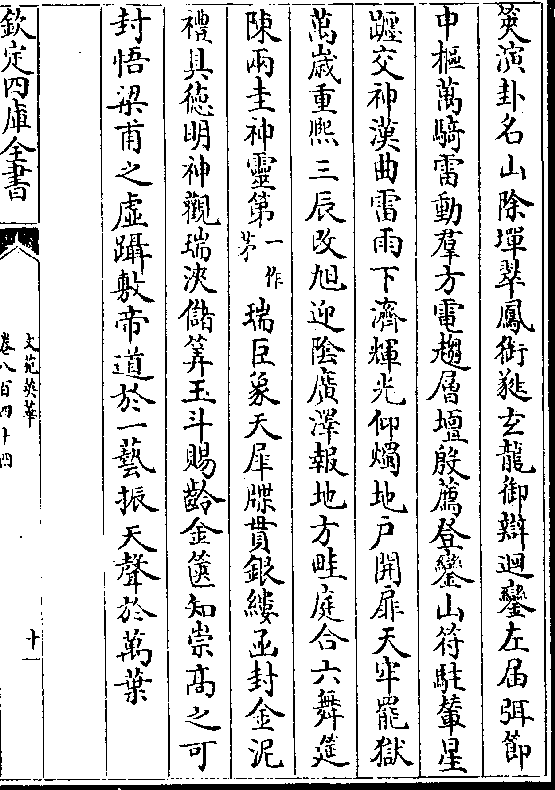 筴演卦名山除墠翠鳳銜蕤玄龍御辯迴鑾左届弭節
中樞萬騎雷動羣方電趨層壇殷薦登鑾山符駐輦星
躔交神漢曲雷雨下濟輝光仰燭地戸開扉天牢罷獄
萬歲重熙三辰改旭迎陰廣澤報地方畦庭合六舞筵
陳兩圭神靈第一作茅瑞巨象天犀牒貫銀縷函封金泥
禮具徳明神觀瑞浹儲筭玉斗賜齡金篋知崇髙之可
封悟梁甫之虛躡敷帝道於一藝振天聲於萬葉
欽定四庫全書
文苑英華
卷八百四十四
十一